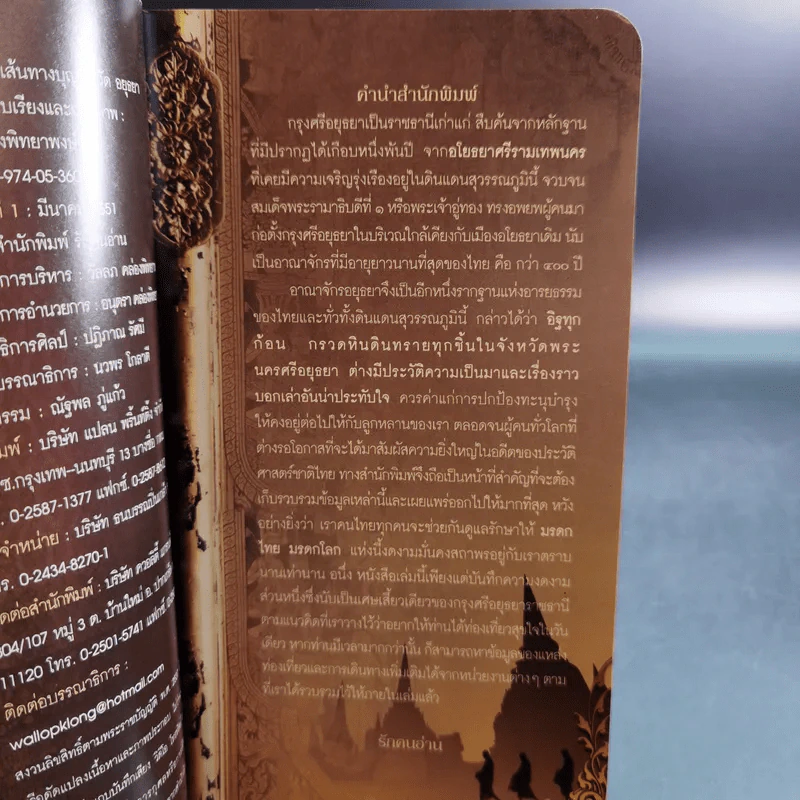 เส้นทางบุญ
อยุธยา
บเรียงและ
งพิทยาพงษ์
-974-05-360
ที่ 1 : มีนาคม
551
สำนักพิมพ์
อ่าน
การบริหาร : วัลลภ คล่องพิทยา
การอำนวยการ : อนุตรา คล่องพิทย
ธิการศิลป์ : ปฏิภาณ รัศมี
บรรณาธิการ : นวพร โกลาดี
กรรม : ณัฐพล ภู่แก้ว
มพ์ : บริษัท แปลน พริ้นท์ติ้ง จำกัด
ซ.กรุงเทพ–นนทบุรี 13 บางซื่อ
0-2587-1377 แฟกซ์.
จำหน่าย : บริษัท
0-2434-8270-1
ติดต่อสำนักพิมพ์ : บริษัท ควอลิตี้
304/107 หมู่ 3 ต. บ้านใหม่ อ.
11120 โทร. 0-2501-5741 แฟกซ์
ติดต่อบรรณาธิการ :
wallopklong@hotmail.com
สงวนลิขสิทธิ์ตามพระราชบัญญัติ พ.ศ.
คำนำสำนักพิมพ์
กรุงศรีอยุธยาเป็นราชธานีเก่าแก่ สืบค้นจากหลักฐาน
ที่มีปรากฏได้เกือบหนึ่งพันปี จากอโยธยาศรีรามเทพนคร
ที่เคยมีความเจริญรุ่งเรืองอยู่ในดินแดนสุวรรณภูมินี้ จวบจน
สมเด็จพระรามาธิบดีที่ ๑ หรือพระเจ้าอู่ทอง ทรงอพยพผู้คนมา
ก่อตั้งกรุงศรีอยุธยาในบริเวณใกล้เคียงกับเมืองอโยธยาเดิม นับ
เป็นอาณาจักรที่มีอายุยาวนานที่สุดของไทย คือ กว่า ๔๐๐ ปี
อาณาจักรอยุธยาจึงเป็นอีกหนึ่งรากฐานแห่งอารยธรรม
ของไทยและทั่วทั้งดินแดนสุวรรณภูมินี้ กล่าวได้ว่า อิฐทุก
ก้อน กรวดหินดินทรายทุกชิ้นในจังหวัดพระ
นครศรีอยุธยา ต่างมีประวัติความเป็นมาและเรื่องราว
บอกเล่าอันน่าประทับใจ ควรค่าแก่การปกป้องทะนุบำรุง
ให้คงอยู่ต่อไปให้กับลูกหลานของเรา ตลอดจนผู้คนทั่วโลกที่
ต่างรอโอกาสที่จะได้มาสัมผัสความยิ่งใหญ่ในอดีตของประวัติ
ศาสตร์ชาติไทย ทางสำนักพิมพ์จึงถือเป็นหน้าที่สำคัญที่จะต้อง
เก็บรวบรวมข้อมูลเหล่านี้และเผยแพร่ออกไปให้มากที่สุด หวัง
อย่างยิ่งว่า เราคนไทยทุกคนจะช่วยกันดูแลรักษาให้ มรดก
ไทย มรดกโลก แห่งนี้งดงามมั่นคงสถาพรอยู่กับเราตราบ
นานเท่านาน อนึ่ง หนังสือเล่มนี้เพียงแต่บันทึกความงดงาม
ส่วนหนึ่งซึ่งนับเป็นเศษเสี้ยวเดียวของกรุงศรีอยุธยาราชธานี
ตามแนวคิดที่เราวางไว้ว่าอยากให้ท่านได้ท่องเที่ยวสุขใจในวัน
เดียว หากท่านมีเวลามากกว่านั้น ก็สามารถหาข้อมูลของแหล่ง
ท่องเที่ยวและการเดินทางเพิ่มเติมได้จากหน่วยงานต่างๆ ตาม
ที่เราได้รวบรวมไว้ให้ภายในเล่มแล้ว
รักคนอ่าน